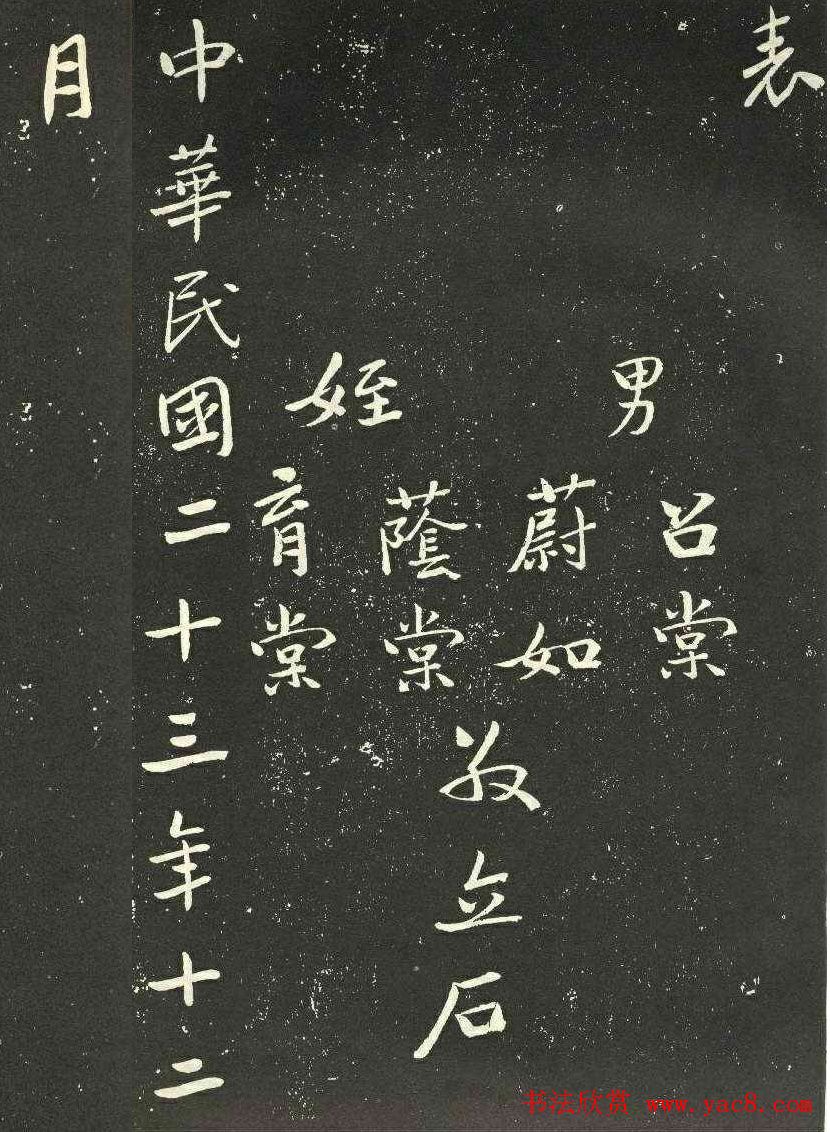 表
男
召棠
蔚如
姪
蔭棠
育棠
敬立石
中華民國二十三年十二
月
书法欣赏 www.yac8.com